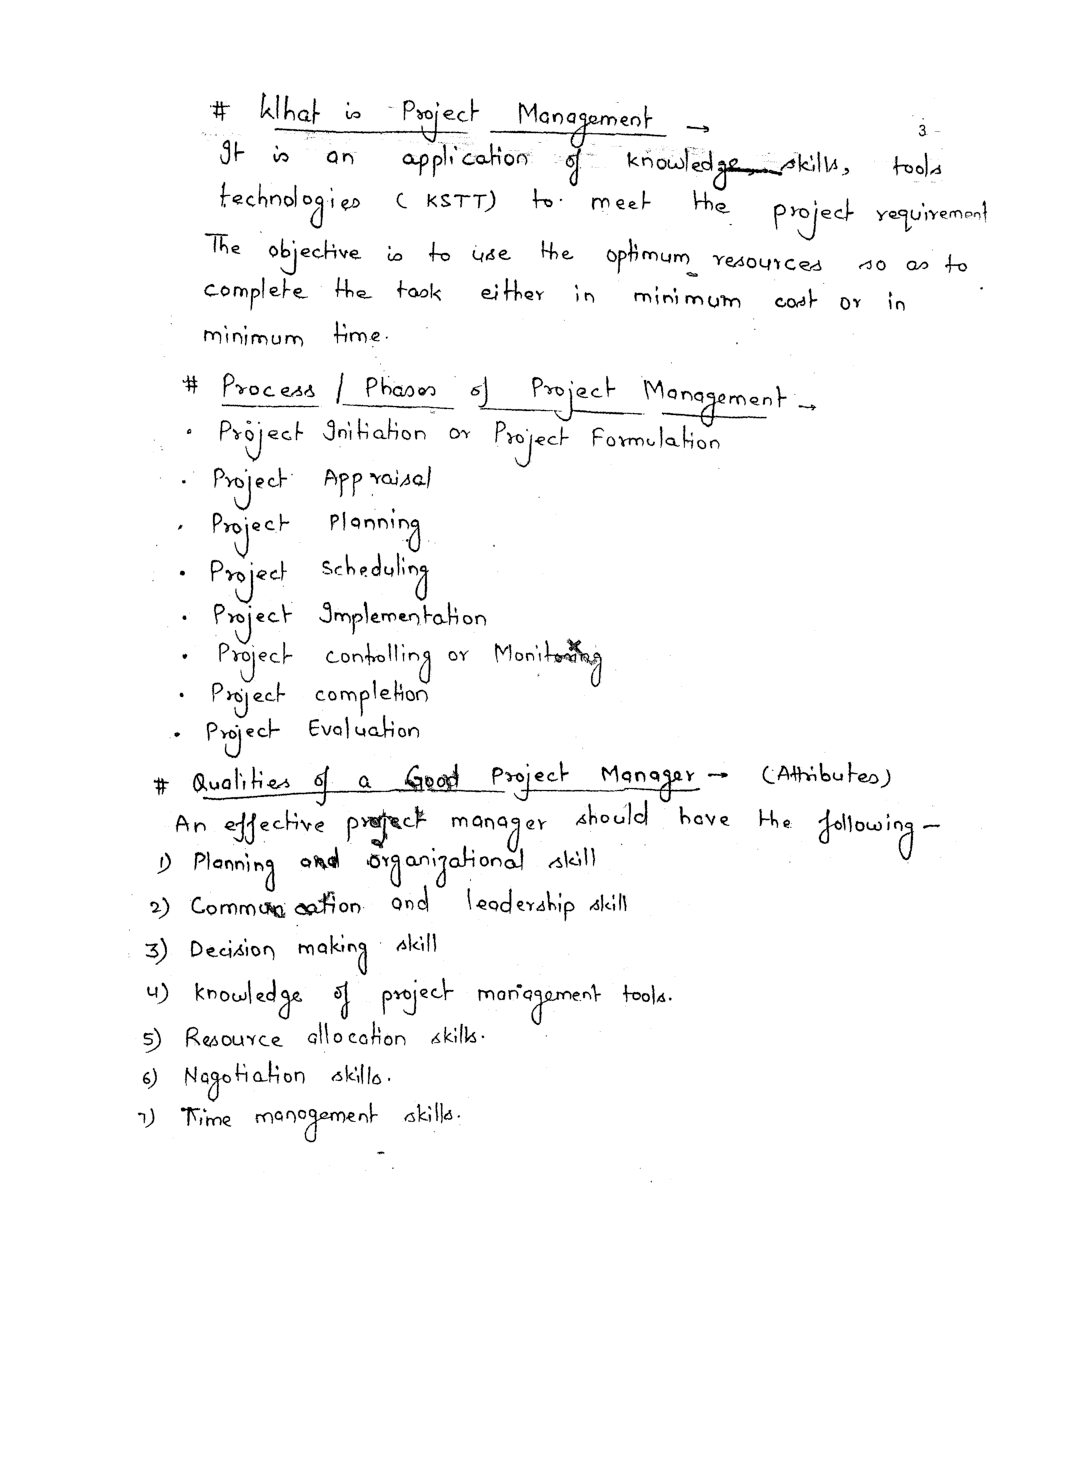 # What is Project Management →
3
It is an application of knowledge, skills, tools
technologies ( KSTT) to meet the project requirement
The objective is to use the optimum resources so as to
complete the task either in minimum cost or in
minimum time.
# Process / Phases of Project Management →
• Project Initiation or Project Formulation
• Project Appraisal
• Project Planning
• Project Scheduling
• Project Implementation
• Project contolling or Monitoring
• Project completion
• Project Evaluation
# Qualities of a Good Project Manager → (Attributes)
An effective project manager should have the following –
1) Planning and organizational skill
2) Communication and leadership skill
3) Decision making skill
4) knowledge of project management tools.
5) Resource allocation skills.
6) Nagotiation skills.
7) Time management skills.